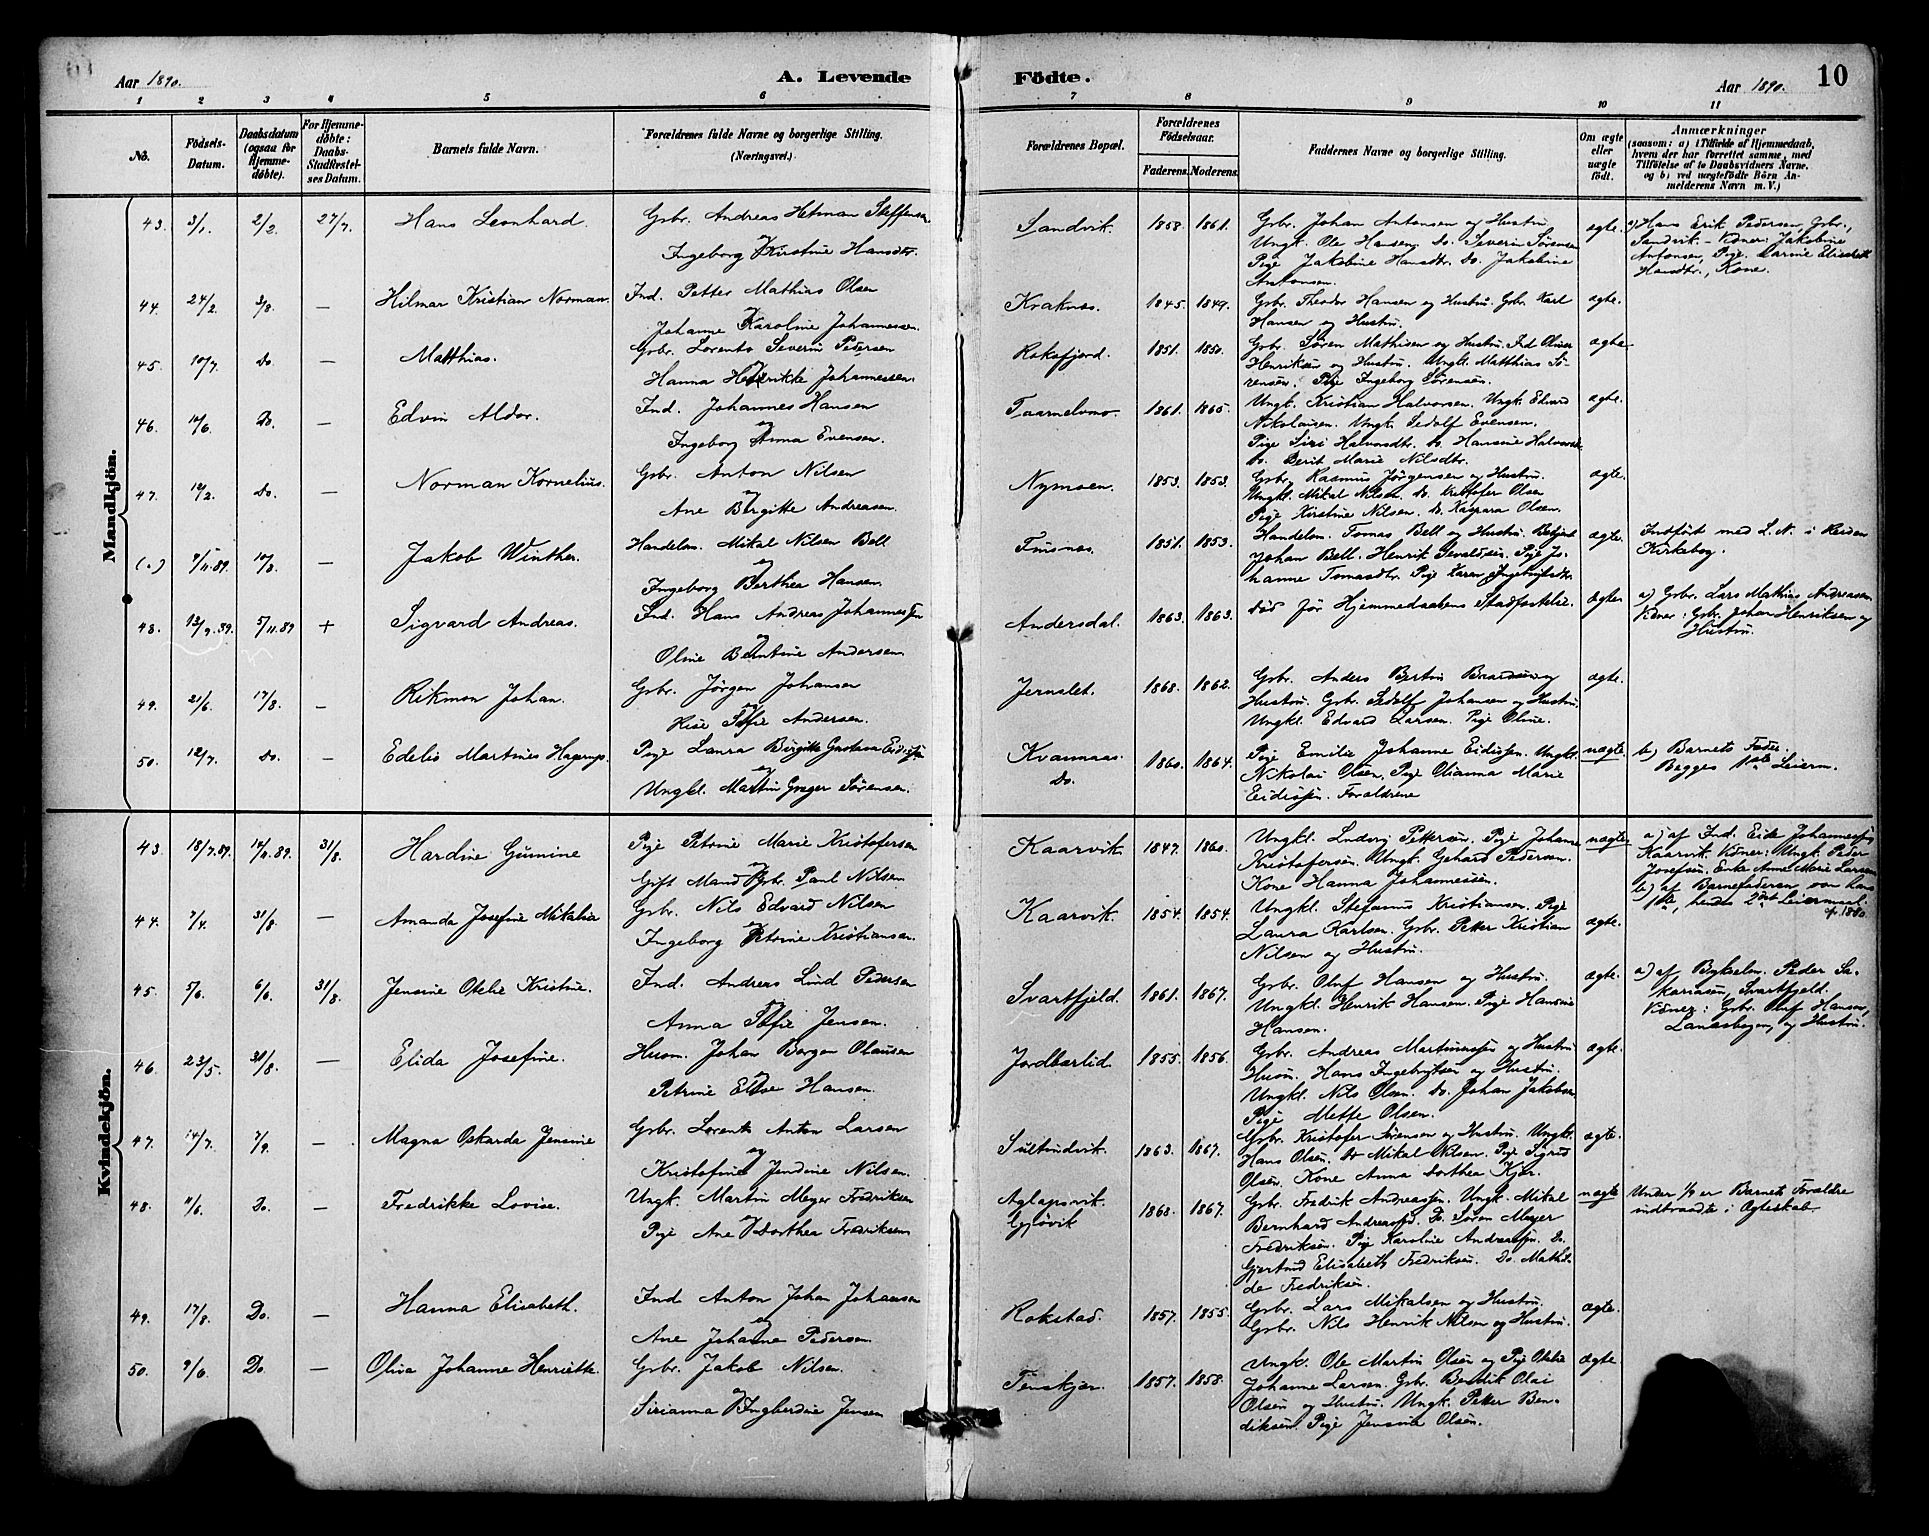 Aar 1890.
A. Levende Fødte.
Aar 1890.
10
1 2 3 4 5 6 7 8 9 10 11
No.
Fødsels-Datum.
Daabsdatum (ogsaa for Hjemmedøbte).
For Hjemmedøbte: Daabs-Stadfæstelses Datum.
Barnets fulde Navn.
Forældrenes fulde Navne og borgerlige Stilling. (Næringsvei.)
Forældrenes Bopæl.
Forældrenes Fødselsaar.
Faderens. Moderens.
Faddernes Navne og borgerlige Stilling.
Om ægte eller uægte født.
Anmærkninger (saasom: a) i Tilfælde af Hjemmedaab, hvem der har forrettet samme, med Tilføielse af to Daabsvidners Navne, og b) ved uægtefødte Børn Anmelderens Navn m. V.)
Mandkjön.
43. 3/1. 2/2. 27/7. Hans Leonhard. Gbr. Andreas Hetman Steffensen og Ingeborg Kirstine Hansdtr. Sandvik. 1858. 1861. Gbr. Johan Antonsen og Hustru. Ungk. Ole Hansen. Do. Severin Sørensen Pige Jakobine Hansdtr. Do. Jakobine Antonsen. ægte. a) Hans Erik Pedersen, Gbr., Sandvik. - Vidner: Jakobine Antonsen, Pige. Karine Elisabeth Hansdtr., Kone.
44. 24/2. 3/8. — Hilmar Kristian Norman. Ind. Petter Mathias Olsen og Johanne Karoline Johannessen. Kraknes. 1845. 1849. Gbr. Theodor Hansen og Hustru. Gbr. Karl Hansen og Hustru. ægte.
45. 10/7. Do. — Matthias. Gbr. Lorents Severin Pedersen og Hanna Henrikke Johannessen. Roksfjord. 1851. 1850. Gbr. Søren Mathisen og Hustru. Ind. Oliver Henriksen og Hustru. Ungk. Matthias Sørensen. Pige Ingeborg Sørensen. ægte.
46. 10/6. Do. — Edvin Aldor. Ind. Johannes Hansen og Ingeborg Anna Evensen. Taarnelvmo. 1861. 1865. Ungk. Kristian Halvorsen. Ungk. Edvard Nikolaisen. Ungk. Sedolf Evensen. Pige Siri Halvorsdtr. Do Hansine Halvorsdtr Do. Berit Marie Nilsdtr. ægte.
47. 12/2. Do. — Norman Kornelius. Gbr. Anton Nilsen og Ane Birgitte Andreasen. Nymoen. 1853. 1853. Gbr. Rasmus Jørgensen og Hustru. Ungkl. Mikal Nilsen. Do. Kristofer Olsen Pige Kirstine Nilsen. Do. Kaspara Olsen. ægte.
(.) 9/11.89. 10/8. — Jakob Winther. Handelsm. Mikal Nilsen Bell og Ingeborg Berthea Hansen. Finsnes. 1851. 1853. Handelsm. Tomas Bell og Hustru. Johan Bell. Henrik Sivaldsen. Pige Johanne Tomasdtr. Pige Karen Ingebrigtsdtr. ægte. Indført med L. N. i Reisen Kirkebog.
48. 12/9.89. 5/11.89 + Sigvard Andreas. Ind. Hans Andreas Johannessen og Oline Berntine Andersen. Andersdal. 1863. 1863. Død før Hjemmedaabens Stadfæstelse. ægte. a) Gbr. Lars Mathias Andreasen. Vidner: Gbr. Johan Henriksen og Hustru.
49. 21/6. 17/8. — Rikmon Johan. Gbr. Jørgen Johansen og Sofie Andersen. Jernslet. 1868. 1862. Gbr. Anders Bertin og Hustru. Gbr. Sedolf Johansen og Hustru. Ungkl. Edvard Larsen. Pige Oline. ægte.
50. 12/7. Do. — Edelio Martines Hagerup. Pige Laura Birgitte Gustava Eidissen og Ungkl. Martin Greger Sørensen. Kvannaas. Do. 1860. 1864. Pige Emilie Johanne Eidissen. Ungkl. Nikolai Olsen. Pige Olianna Marie Eidissen. Forældrene uægte b) Barnets Fader. Begges 1ste Leierm.
Kvindekjön.
43. 18/7.89. 14/11.89. 31/8. Hardine Gumine Pige Petrine Marie Kristofersen og Gift Mand Gbr. Paul Nilsen. Kaarvik. 1847. 1860. Ungkl. Ludvig Pettersen. Pige Johanne Kristofersen. Ungk. Gehard Pedersen. Kone Hanna Johannessen. uægte. a) af Ind. Eide Johannessen Kaarvik. Vidner: Ungk. Peder Josefsen. Enke Anne Marie Larsen b) af Barnefaderen som hans 1ste, hendes 2det Leiermaal. 1880.
44. 7/4. 31/8. — Amanda Josefine Mikalie Gbr. Nils Edvard Nilsen og Ingeborg Petrine Kristiansen. Kaarvik. 1854. 1854. Ungkl. Stefanus Kristiansen. Pige Laura Karlsen. Gbr. Petter Kristian Nilsen og Hustru. ægte.
45. 5/6. 6/6. 31/8. Jensine Otelie Kristine. Ind. Andreas Lind Pedersen og Anna Sofie Jensen. Svartfjeld. 1861. 1867. Gbr. Oluf Hansen og Hustru. Ungkl. Henrik Hansen. Pige Hansine Hansen. ægte. a) af Bykselm. Peder Sakariasen, Svartfjeld. Vidner: Gbr. Oluf Hansen, og Hustru.
46. 23/5. 31/8. — Elida Josefine. Husm. Johan Bergon Olausen og Petrine Elise Hansen. Jordbærlid. 1855. 1856. Gbr. Andreas Martinussen og Hustru Husm. Hans Ingebrigtsen og Hustru. Ungkl. Nils Olsen. Do. Johan Jakobsen Pige Mette Olsen. ægte.
47. 14/7. 7/9. — Magna Oskarda Jensine Gbr. Lorents Anton Larsen og Kristofine Jendine Nilsen. Sultindvik. 1863. 1867. Gbr. Kristofer Sørensen og Hustru. Ungkl. Hans Olsen. Do Mikal Nilsen. Pige Sigrid Olsen. Kone Anna Dorthea Kjær. ægte.
48. 11/6. Do. — Fredrikke Lovise. Ungk. Martin Meyer Fredriksen og Pige Ane Dorthea Fredriksen Aglapsvik. Gjøvik 1868. 1867. Gbr. Fredrik Andreassen. Ungk. Mikal Bernhard Andreassen. Do. Søren Meyer Fredriksen. Pige Karoline Andreassen. Do. Gjertrud Elisabeth Fredriksen. Do. Mathilde Fredriksen. uægte Under 1/9 er Barnets Forældre indtraadte i Ægteskab.
49. 17/8. Do. — Hanna Elisabeth. Ind. Anton Johan Johansen og Ane Johanne Pedersen. Rokstad. 1857. 1855. Gbr. Lars Mikalsen og Hustru. Gbr. Nils Henrik Nilsen og Hustru. ægte.
50. 9/6. Do. — Oliva Johanne Henriette. Gbr. Jakob Nilsen. og Sirianna Ingberdine Jensen Tenskjer. 1857. 1858. Ungk. Ole Martin Olsen og Pige Otelie Johanne Larsen. Gbr. Bendik Olai Olsen og Hustru. Ungk. Petter Bendiksen. Pige Jensine Olsen. ægte.